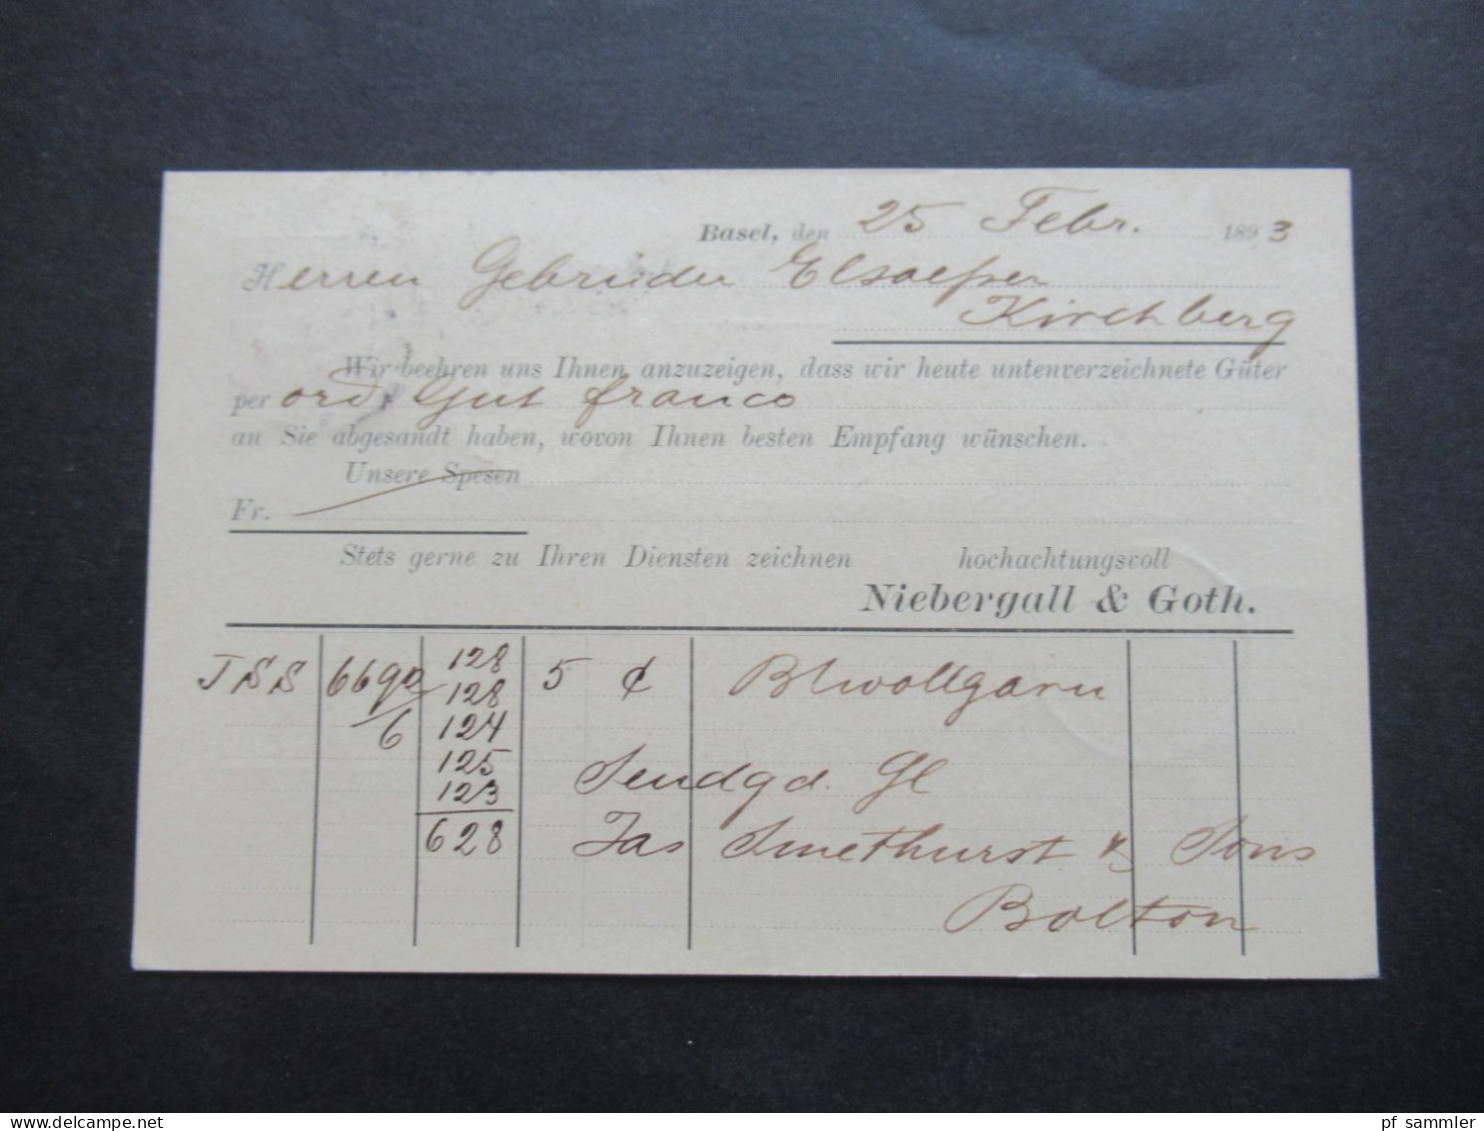 Basel, den 25 Febr. 1893
Herren Gebrüder Elsaesser
Kirchberg
Wir beehren uns Ihnen anzuzeigen, dass wir heute untenverzeichnete Güter
per ord. Gut franco
an Sie abgesandt haben, wovon Ihnen besten Empfang wünschen.
Unsere Spesen
Fr.
Stets gerne zu Ihren Diensten zeichnen hochachtungsvoll
Niebergall & Goth.
JSS 6692/6 128 5 ¢ Blwollgarn
128
124
125 Sendgd. Gl
123
628 Jas Smethurst & Sons
Bolton
pf sammler
delcampe.net